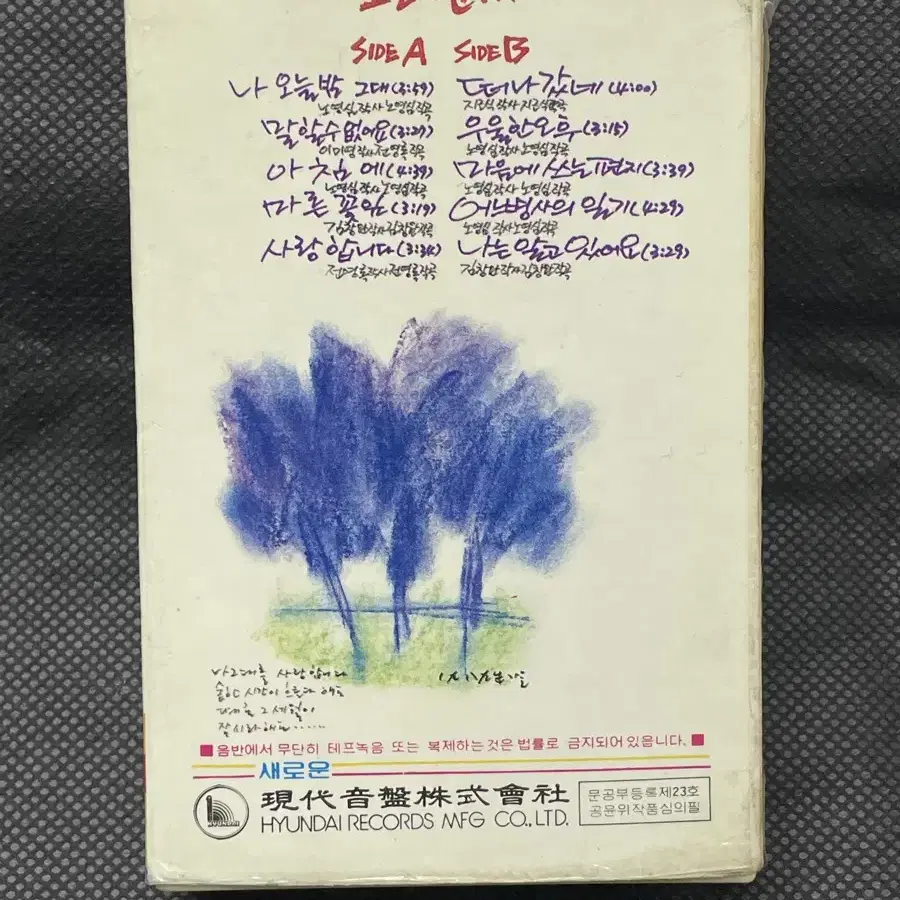 SIDE A
나 오늘밤 그대(3:59)
노영심작사 노영심작곡
말할수없어요(3:27)
이미영작사전영록작곡
아침에(4:39)
노영심작사 노영심작곡
마른꽃잎(3:19)
김창완작사김창완작곡
사랑합니다(3:34)
전영록작사전영록작곡
SIDE B
떠나갔네(4:00)
지근식작사 지근식작곡
우울한오후(3:15)
노영심작사노영심작곡
마음에 쓰는편지(3:39)
노영심작사 노영심작곡
어느병사의 일기(4:29)
노영심 작사노영심작곡
나는알고있어요(3:29)
김창완작사김창완작곡
나그대를 사랑합니다
시간이 흐른다 해도
그 세월이
■음반에서 무단히 테프녹음 또는 복제하는것은 법률로 금지되어있읍니다.■
새로운
現代音盤株式會社
HYUNDAI RECORDS MFG CO.,LTD.
문공부등록제23호
공윤위작품심의필